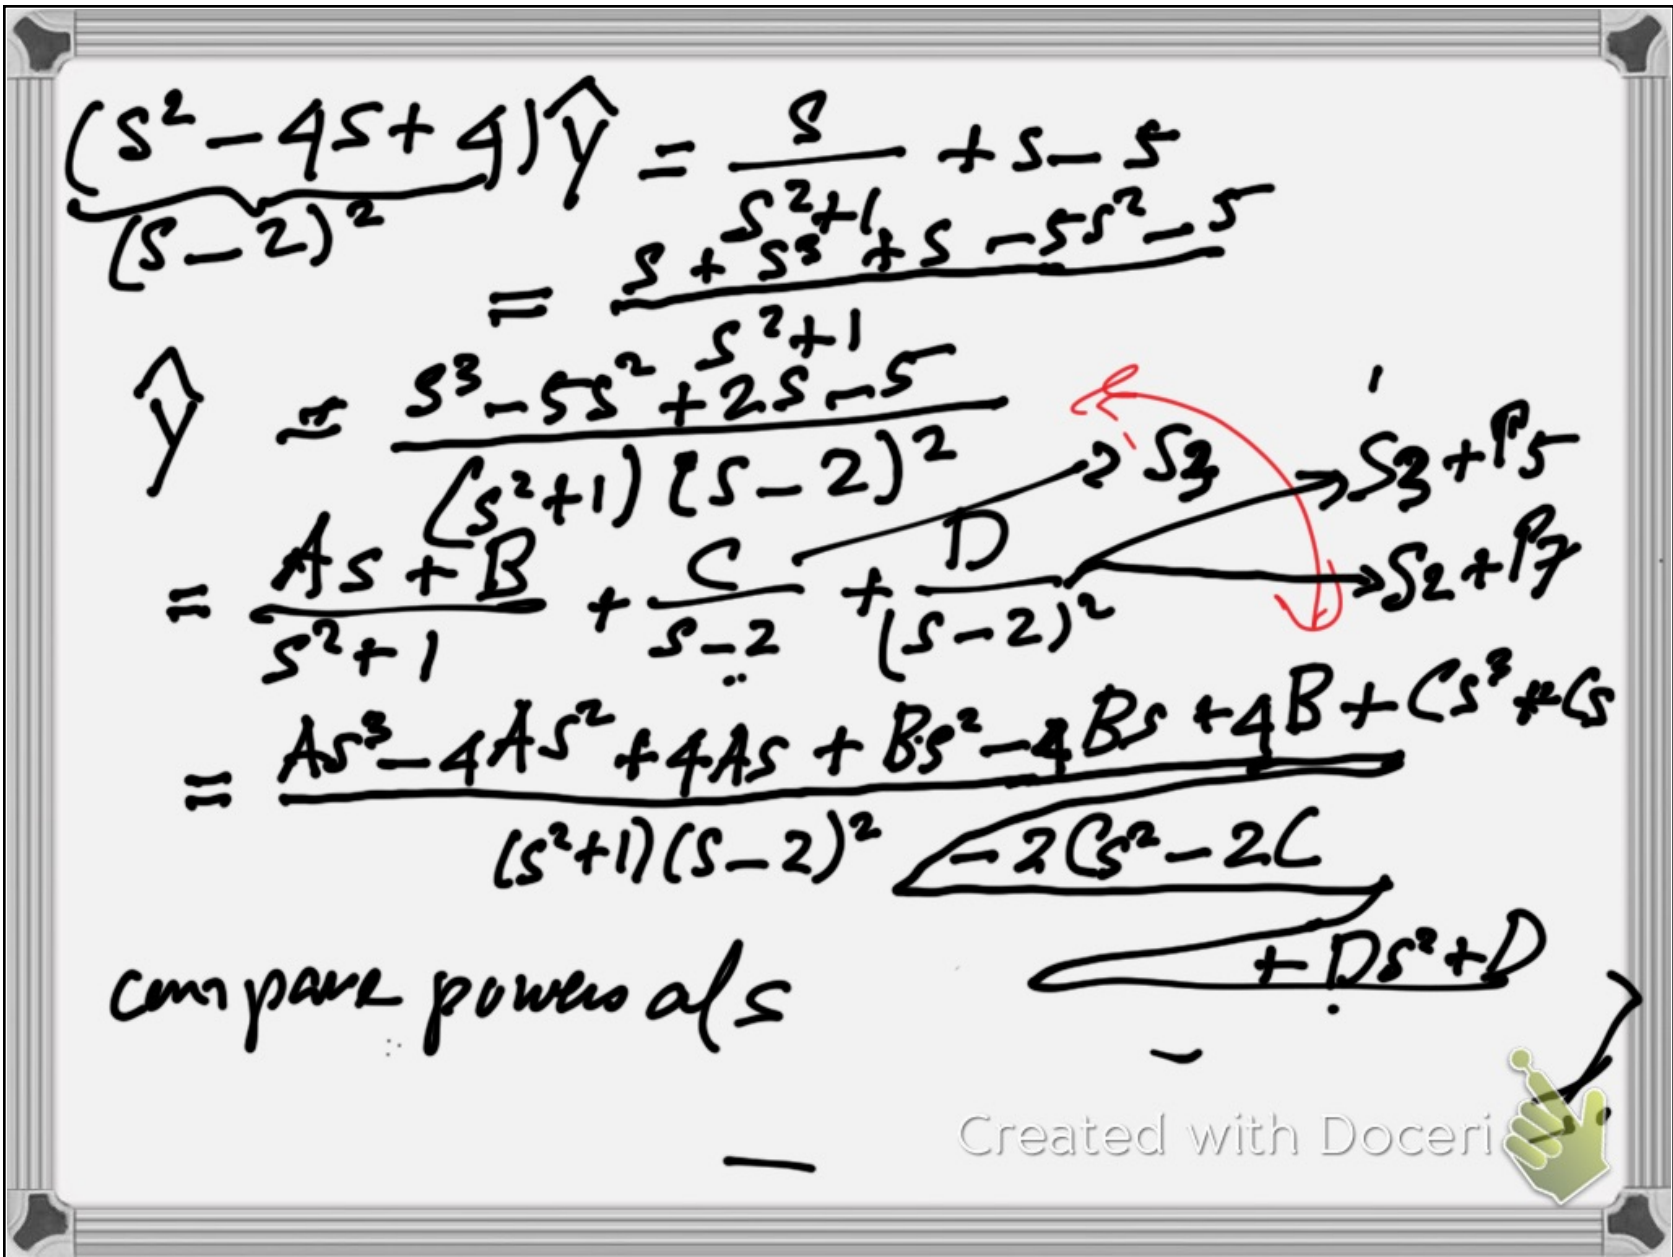 (s² − 4s + 4) Ŷ = s / (s²+1) + s − 5
(s − 2)²
= (s + s³ + s − 5s² − 5) / (s²+1)
Ŷ = (s³ − 5s² + 2s − 5) / ((s²+1)(s − 2)²)
= (As + B) / (s²+1) + C / (s−2) + D / (s−2)²
→ S3
→ S3 + P5
→ S2 + P7
= (As³ − 4As² + 4As + Bs² − 4Bs + 4B + Cs³ + Cs − 2Cs² − 2C + Ds² + D) / ((s²+1)(s−2)²)
compare powers of s
Created with Doceri